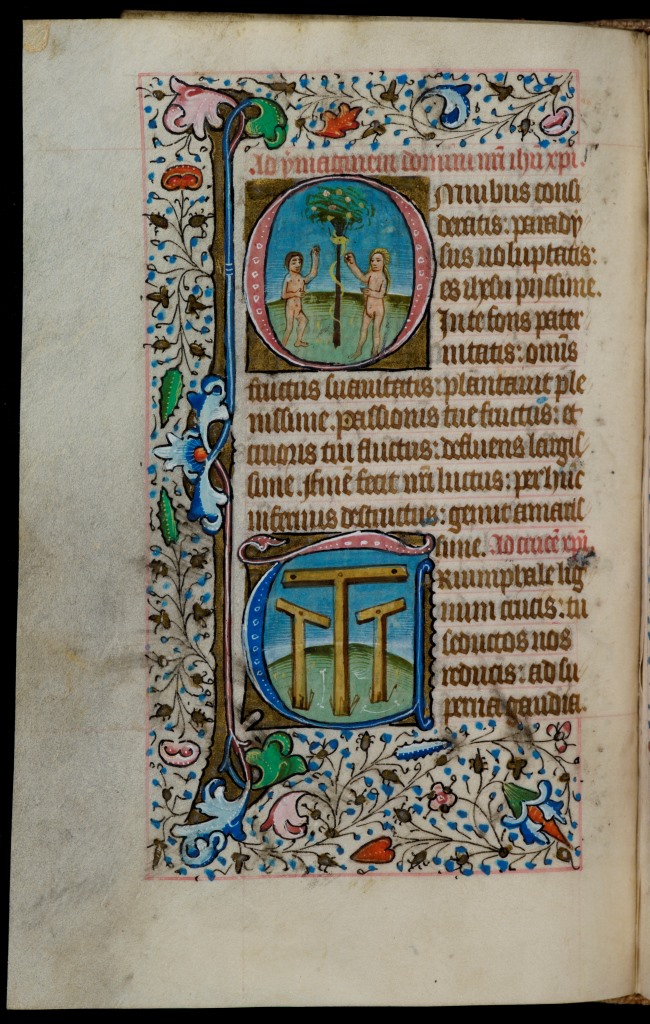 Ad ymaginem domini nr̄i ihū xpī.
Omnibus consi
deratis: parady
sus uoluptatis:
es ihesu pijssime.
In te fons pater
nitatis: omīs
fructus suauitatis: plantauit ple
nissime. passionis tue fructus: et
cruoris tui fluctus: defluens largis
sime. Finē fecit nr̄i luctus: per hūc
infernus destructus: gemit amaris
sime. Ad crucē xpī
Triumphale lig
num crucis: tu
seductos nos
reducis: ad su
perna gaudia.